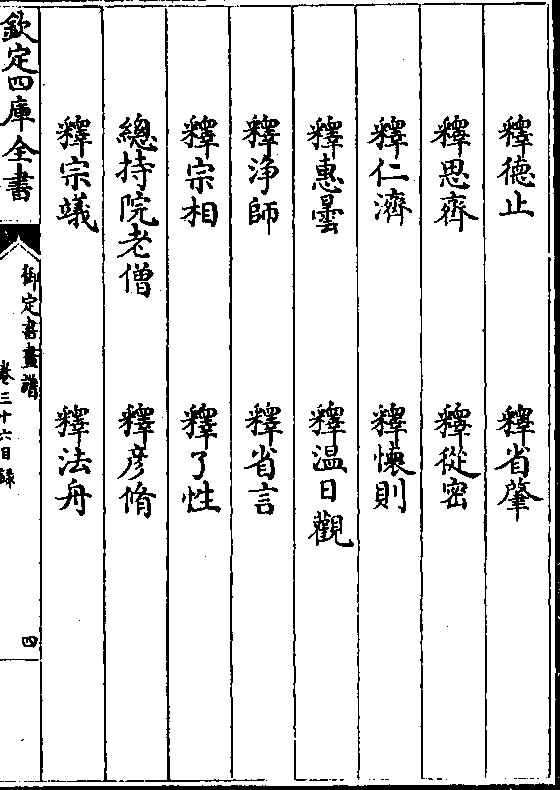 釋德止　釋省肇
釋思齊　釋從密
釋仁濟　釋懷則
釋惠曇　釋温日觀
釋淨師　釋省言
釋宗相　釋了性
總持院老僧　釋彥脩
釋宗㠖　釋法舟
欽定四庫全書
御定書畫譜
卷三十六目録
四